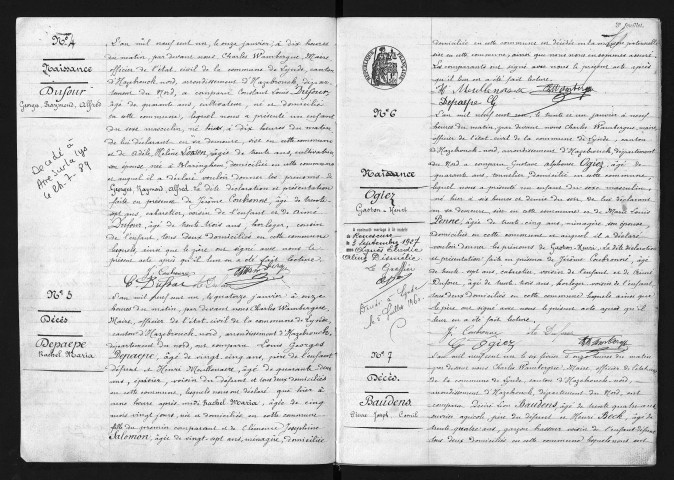 Nº 4
Naissance
Dufour
Georges, Raymond, Alfred
Décédé à
Aire sur la Lys
L'an mil neuf cent un, le onze janvier à dix heures
du matin, par devant nous, Charles Wambergue, Maire
officier de l'état civil de la commune de canton
d'Hazebrouck nord, arrondissement d'Hazebrouck, dépar-
tement du Nord, a comparu Constant Louis Dufour,
âgé de quarante ans, cultivateur, né et domicilié
en cette commune, lequel nous a présenté un enfant
du sexe masculin, né à dix heures du matin
de lui déclarant en sa demeure, sise en cette commune
et de Adèle, âgée de trente ans, cultivatrice
son épouse, à Blaringhem domiciliée en cette commune
et auquel il a déclaré vouloir donner les prénoms de
Georges Raymond Alfred. La dite déclaration et présentation
faite en présence de Jérôme Coubronne, âgé de trente
sept ans, cabaretier, voisin de l'enfant et de
Dufour, âgé de trente trois ans, horloger, cousin
de l'enfant, tous deux domiciliés en cette commune
lesquels, ainsi que le père ont signé avec nous le
présent acte après qu'il leur en a été fait lecture.
J. Coubronne
C. Dufour
Nº 5
Décès
Depaepe
Rachel Maria
L'an mil neuf cent un, le quatorze janvier, à onze
heures du matin, par devant nous, Charles Wambergue,
Maire, officier de l'état civil de la commune de
canton d'Hazebrouck nord, arrondissement d'Hazebrouck,
département du nord, ont comparu Louis Georges
Depaepe, âgé de vingt cinq ans, père de l'enfant
défunt et Henri Meullenaere, âgé de quarante deux
ans, épicier, voisin du défunt et tous deux domiciliés
en cette commune, lesquels nous ont déclaré que hier à
heure après midi, Rachel Maria, âgée de cinq
mois vingt jours, née et domiciliée en cette commune
fille du premier comparant et de Clémence Joséphine
Salomon, âgée de vingt-sept ans, ménagère, domiciliée
domiciliée en cette commune est décédée en la maison paternelle
sise en cette commune, ainsi que nous nous en sommes assuré.
Les comparants ont signé avec nous le présent acte après
qu'il leur en a été fait lecture.
H. Meullenaere
Depaepe G
Nº 6
Naissance
Ogiez
Gaston-Henri
A contracté mariage à la mairie
de Renescure
le 5 septembre 1927
avec
Le Greffier
L'an mil neuf cent un, le vingt et un janvier à neuf
heures du matin, par devant nous Charles Wambergue, maire,
officier de l'état civil de la commune de canton
d'Hazebrouck nord, arrondissement d'Hazebrouck, département
du Nord a comparu Gustave Alphonse Ogiez, âgé de
quarante ans, domicilié en cette commune, lequel
nous a présenté un enfant du sexe masculin
né hier à dix heures et demie du soir, de lui déclarant
en sa demeure, sise en cette commune et de Marie Louise
Penne, âgée de trente cinq ans, ménagère, son épouse,
domiciliée en cette commune et auquel il a déclaré
vouloir donner les prénoms de Gaston-Henri, la dite déclaration
et présentation faite en présence de Jérôme Coubronne, âgé
de trente sept ans, cabaretier, voisin de l'enfant et de
Dufour, âgé de trente trois ans, horloger, voisin de l'enfant,
tous deux domiciliés en cette commune lesquels ainsi que
le père ont signé avec nous le présent acte après qu'il
leur en a été fait lecture.
J. Coubronne
G Ogiez
Nº 7
Décès.
Baudens
Pierre Joseph Cornil
L'an mil neuf cent un le février à onze heures du matin
par devant nous Charles Wambergue, Maire, officier de l'état civil
de la commune de canton d'Hazebrouck nord,
arrondissement d'Hazebrouck, département du Nord, ont
comparu Baudens, âgé de trente quatre ans
ouvrier agricole, père du défunt et Henri Beck, âgé de
trente quatre ans, garçon brasseur voisin de l'enfant défunt
tous deux domiciliés en cette commune lesquels nous ont